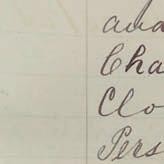 and
Cha
Clo
Pers